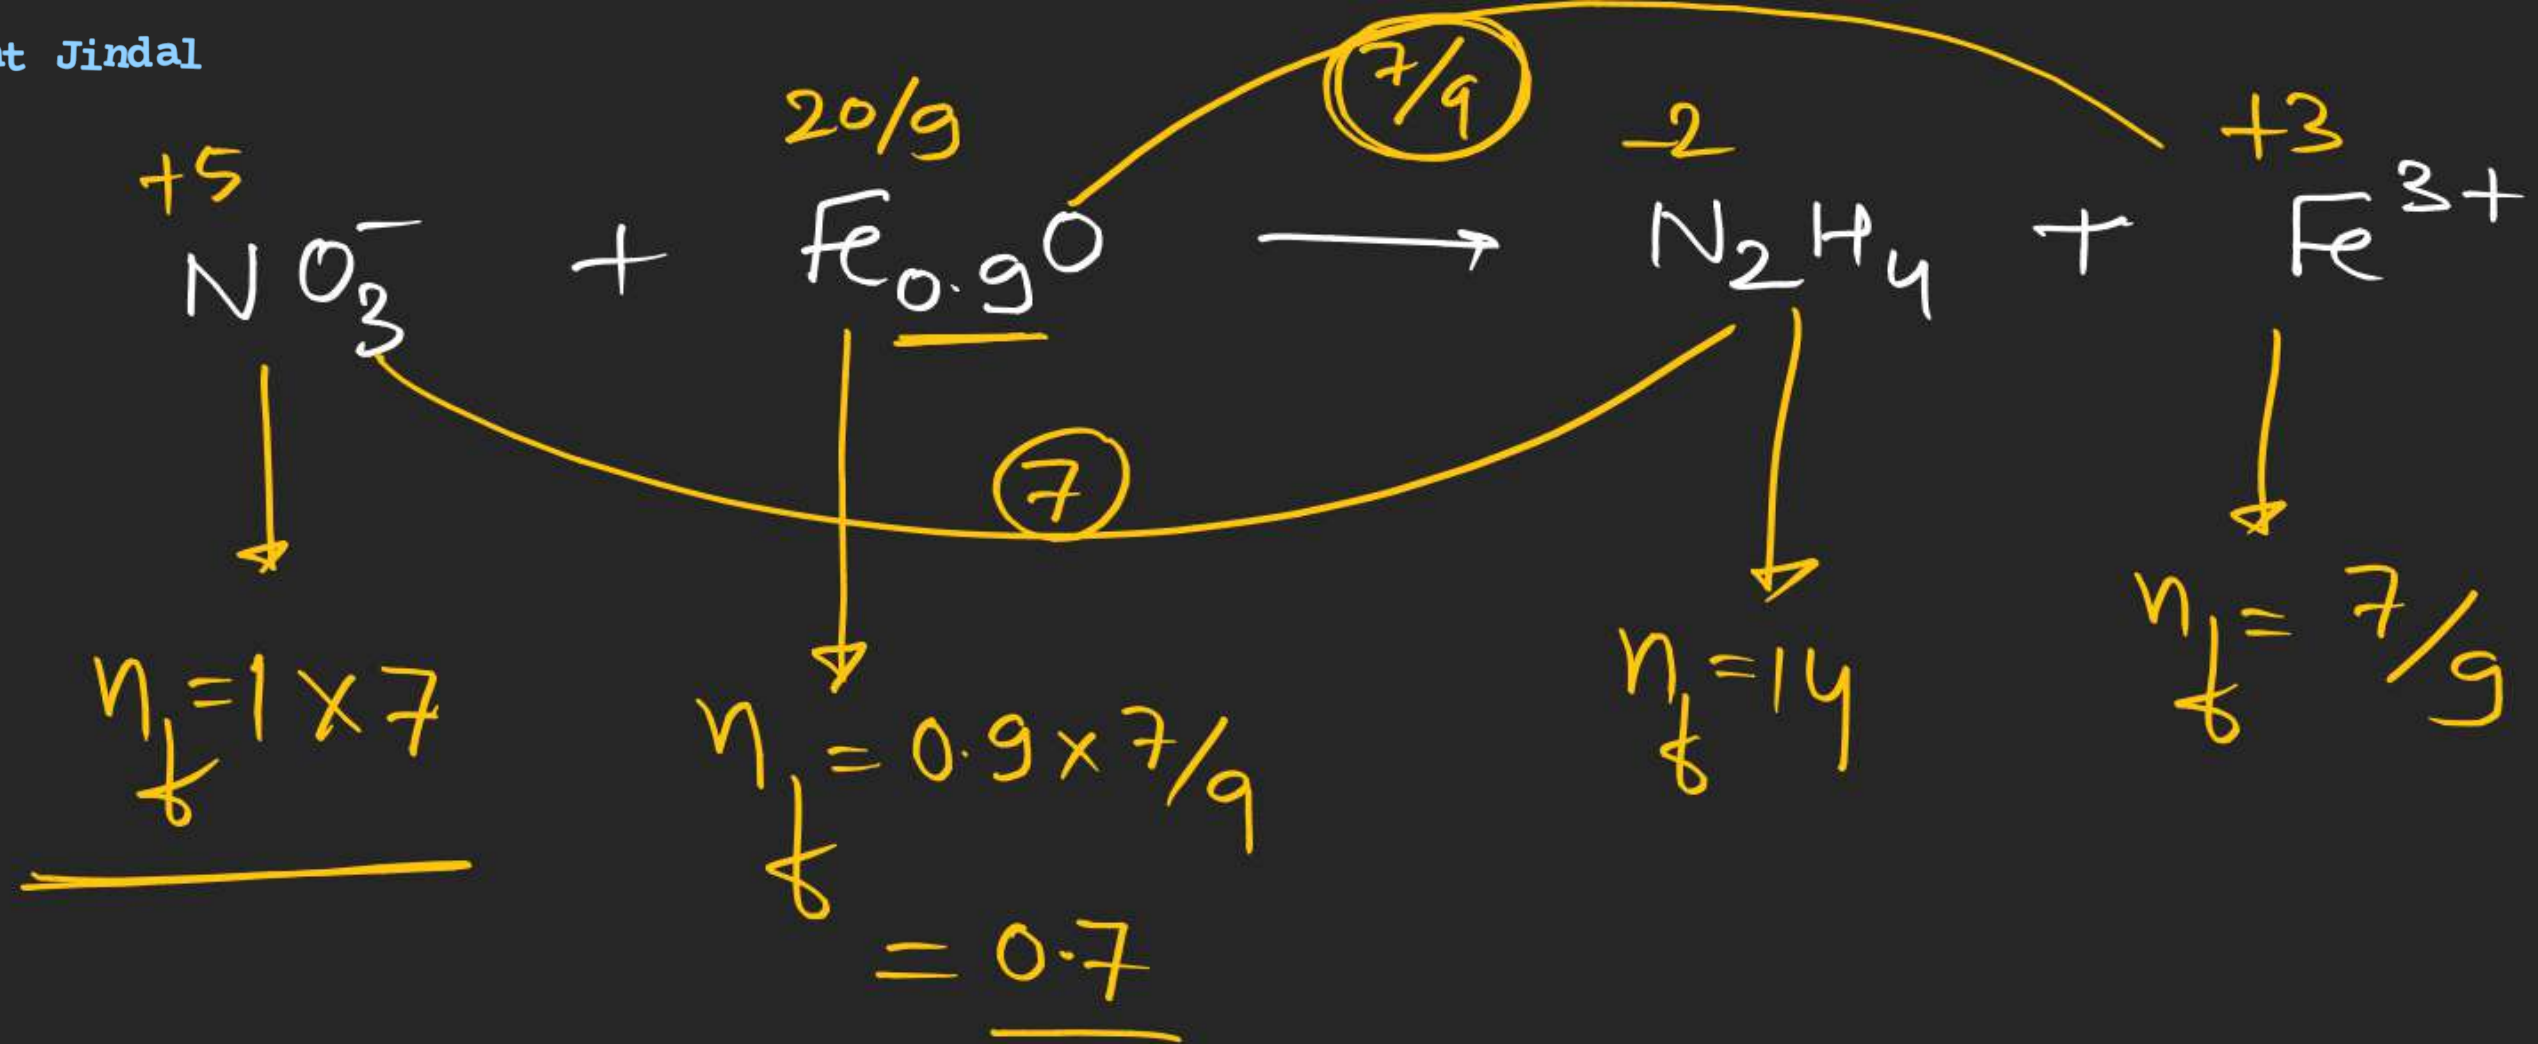 t Jindal
7/9
20/9
-2
+3
+5
NO₃⁻ + Fe₀.₉O → N₂H₄ + Fe³⁺
7
n_f = 1 × 7
n_f = 0.9 × 7/9
n_f = 14
n_f = 7/9
= 0.7